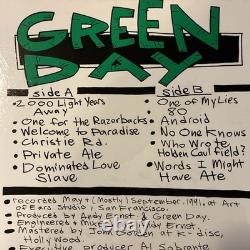 GREEN
DAY
side A
• 2000 Light Years
Away
• One for the Razorbacks
• Welcome to Paradise
• Christie Rd.
• Private Ale
• Dominated Love
Slave
side B
• One of My Lies
• 80
• Android
• No One Knows
• Who Wrote
Holden Caulfield?
• Words I Might
Have Ate
• recorded May + (Mostly) September, 1991, at Art
of Ears Studio, San Francisco.
• Produced by Andy Ernst + Green Day.
• Engineered + Mixed by Andy Ernst.
• Mastered by John at K-disc,
Hollywood.
Executive producer Al Sobrante